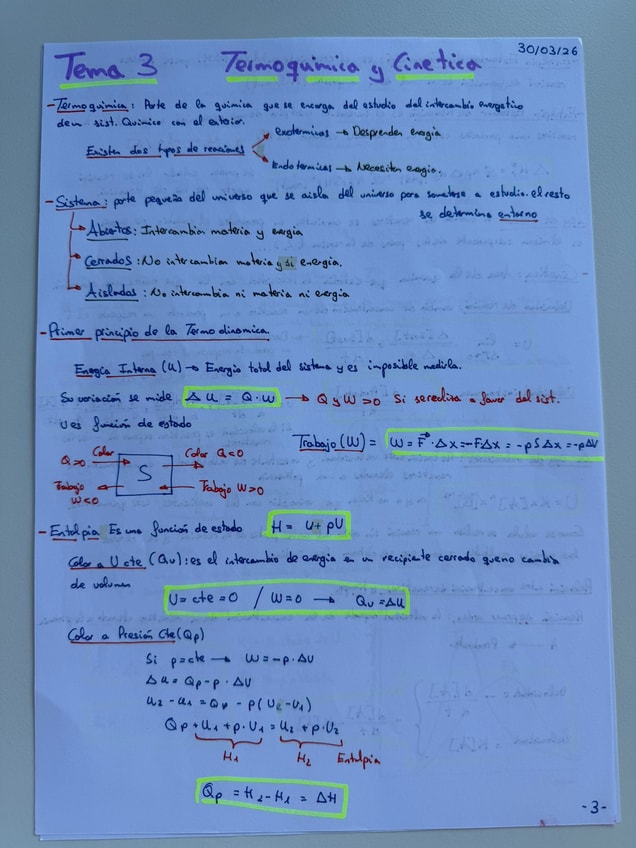 30/03/26
Tema 3 Termoquimica y Cinetica
- Termoquimica: Parte de la quimica que se encarga del estudio del intercambio energetico
de un sist. Quimico con el exterior.
Existen dos tipos de reaciones
exotermicas → Desprenden energia
Endotermicas → Necesiten energia.
- Sistema: parte pequeña del universo que se aisla del universo para someterse a estudio. el resto
se determina entorno
Abiertos: Intercambian materia y energia
Cerrados: No intercambian materia y si energia.
Aislados: No intercambia ni materia ni energia
- Primer principio de la Termodinamica.
Energia Interna (U) → Energia total del sistema y es imposible medirla.
Su variación se mide ΔU = Q · W → Q y W > 0 Si se realiza a favor del sist.
U es función de estado
Trabajo (W) = W = F · Δx = -FΔx = -pSΔx = -pΔV
Q>0 Calor S Calor Q<0
Trabajo W<0 Trabajo W>0
- Entalpia Es una función de estado H = U + pU
Calor a U cte (Qv): es el intercambio de energia en un recipiente cerrado que no cambia
de volumen
U = cte = 0 / W = 0 → Qv = ΔU
Calor a Presión Cte (Qp)
Si p = cte → W = -p · ΔU
ΔU = Qp - p · ΔU
u2 - u1 = Qp - p(U2 - U1)
Qp + u1 + p · U1 = u2 + p · U2
H1 H2 Entalpia
Qp = H2 - H1 = ΔH
- 3 -